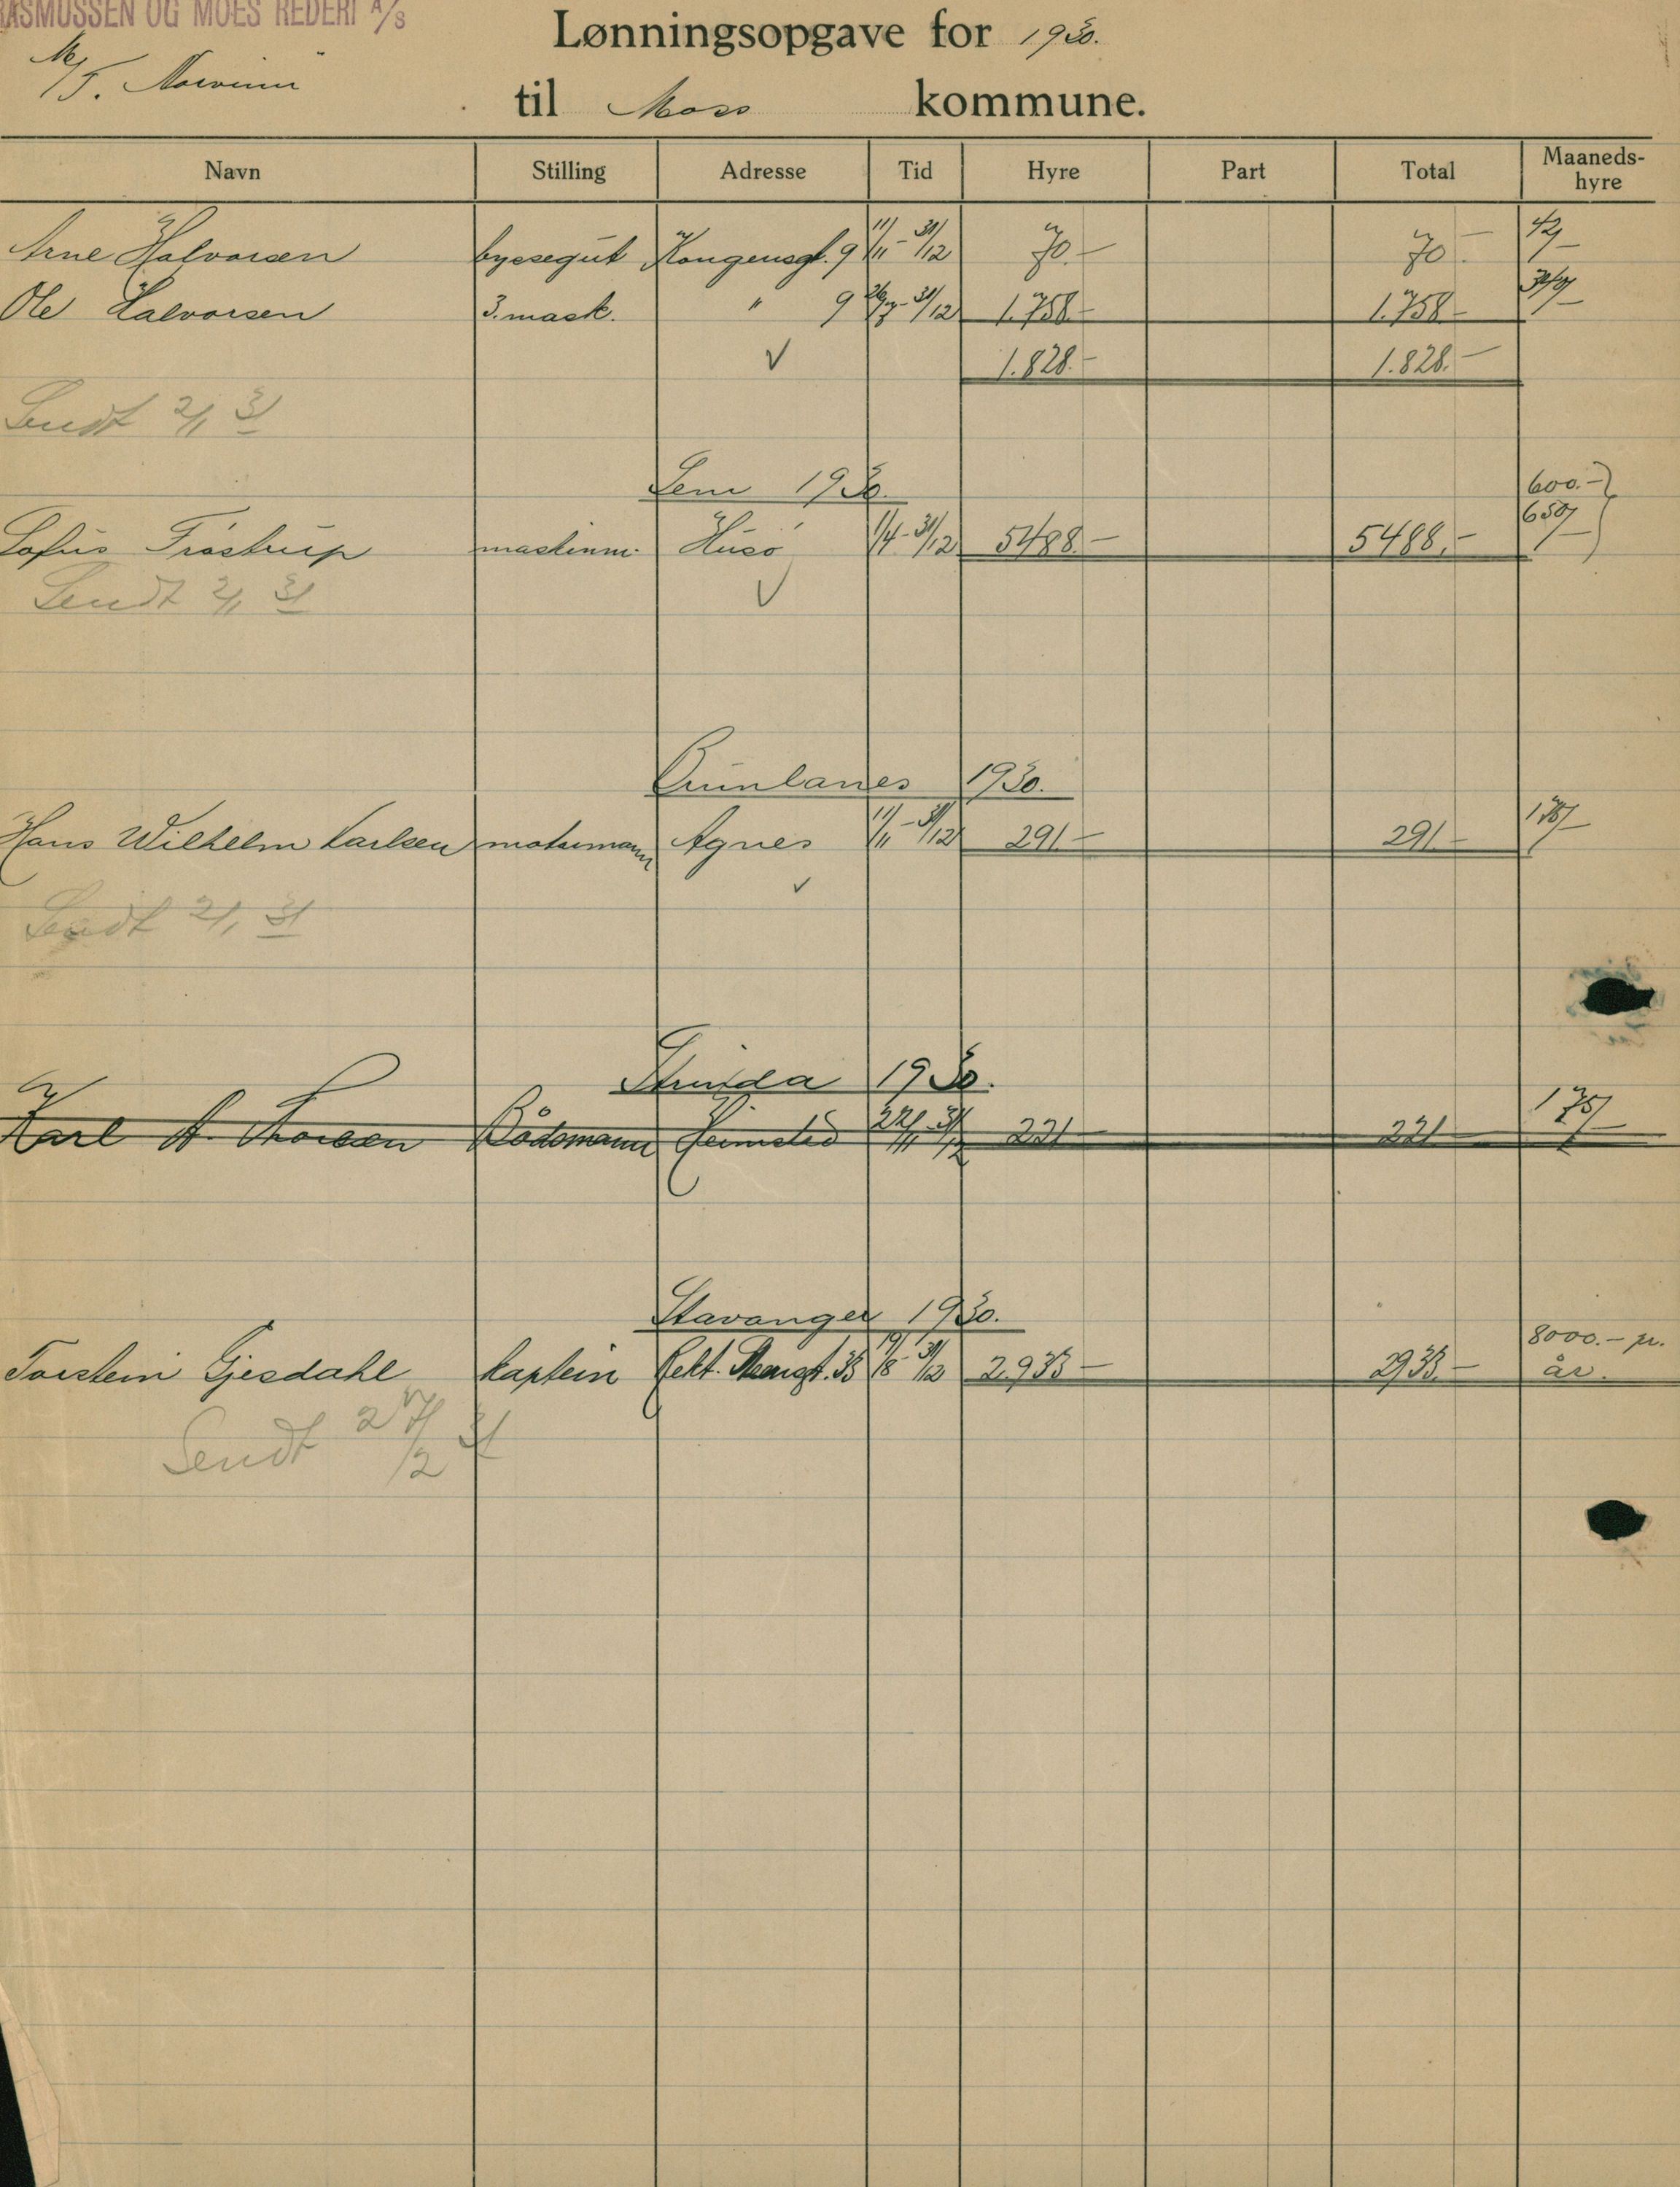 RASMUSSEN OG MOES REDERI A/S
Lønningsopgave for 1930.
M/T. Norvinn"
til Moss kommune.
Navn Stilling Adresse Tid Hyre Part Total Maaneds-hyre
Arne Halvorsen byssegut Kongensgt. 9 11/11 - 31/12 70.- 70.- 42/-
Ole Halvorsen 3. mask. " 9 26/7 - 31/12 1.758.- 1.758.-
√ 1.828.- 1.828.-
Sendt 2/1 31
Sem 1930. 600.-
650/-
Sofus Tråstrup maskinm. Husö 1/4 - 31/12 5488.- 5488.-
Sendt 2/1 31 √
Brunlanes 1930.
Hans Wilhelm Karlsen motormann Agnes 11/11 - 31/12 291.- 291.- 175/-
√
Sendt 2/1, 31
Strinda 1930.
Karl A. Thorsen Båtsmann Heimsted 22/11 - 31/12 221 221 175/-
Stavanger 1930.
Torstein Gjesdahl kaptein Rekt. Steensgt. 35 19/8 - 31/12 2.933.- 2933.- 8000.- pr. år.
Sendt 27/2 31